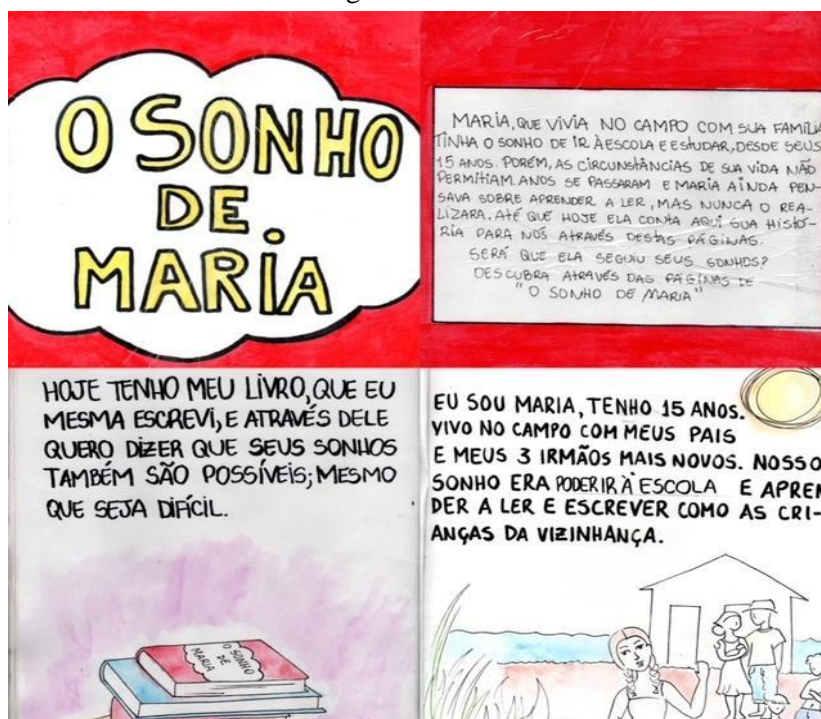 O SONHO
DE
MARIA
MARIA, QUE VIVIA NO CAMPO COM SUA FAMÍLIA
TINHA O SONHO DE IR À ESCOLA E ESTUDAR, DESDE SEUS
15 ANOS. PORÉM, AS CIRCUNSTÂNCIAS DE SUA VIDA NÃO
PERMITIAM. ANOS SE PASSARAM E MARIA AINDA PEN-
SAVA SOBRE APRENDER A LER, MAS NUNCA O REA-
LIZARA. ATÉ QUE HOJE ELA CONTA AQUI SUA HISTÓ-
RIA PARA NÓS ATRAVÉS DESTAS PÁGINAS.
SERÁ QUE ELA SEGUIU SEUS SONHOS?
DESCUBRA ATRAVÉS DAS PÁGINAS DE
"O SONHO DE MARIA"
HOJE TENHO MEU LIVRO, QUE EU
MESMA ESCREVI, E ATRAVÉS DELE
QUERO DIZER QUE SEUS SONHOS
TAMBÉM SÃO POSSÍVEIS; MESMO
QUE SEJA DIFÍCIL.
O SONHO
DE
MARIA
EU SOU MARIA, TENHO 15 ANOS.
VIVO NO CAMPO COM MEUS PAIS
E MEUS 3 IRMÃOS MAIS NOVOS. NOSSO
SONHO ERA PODER IR À ESCOLA E APREN
DER A LER E ESCREVER COMO AS CRI-
ANÇAS DA VIZINHANÇA.